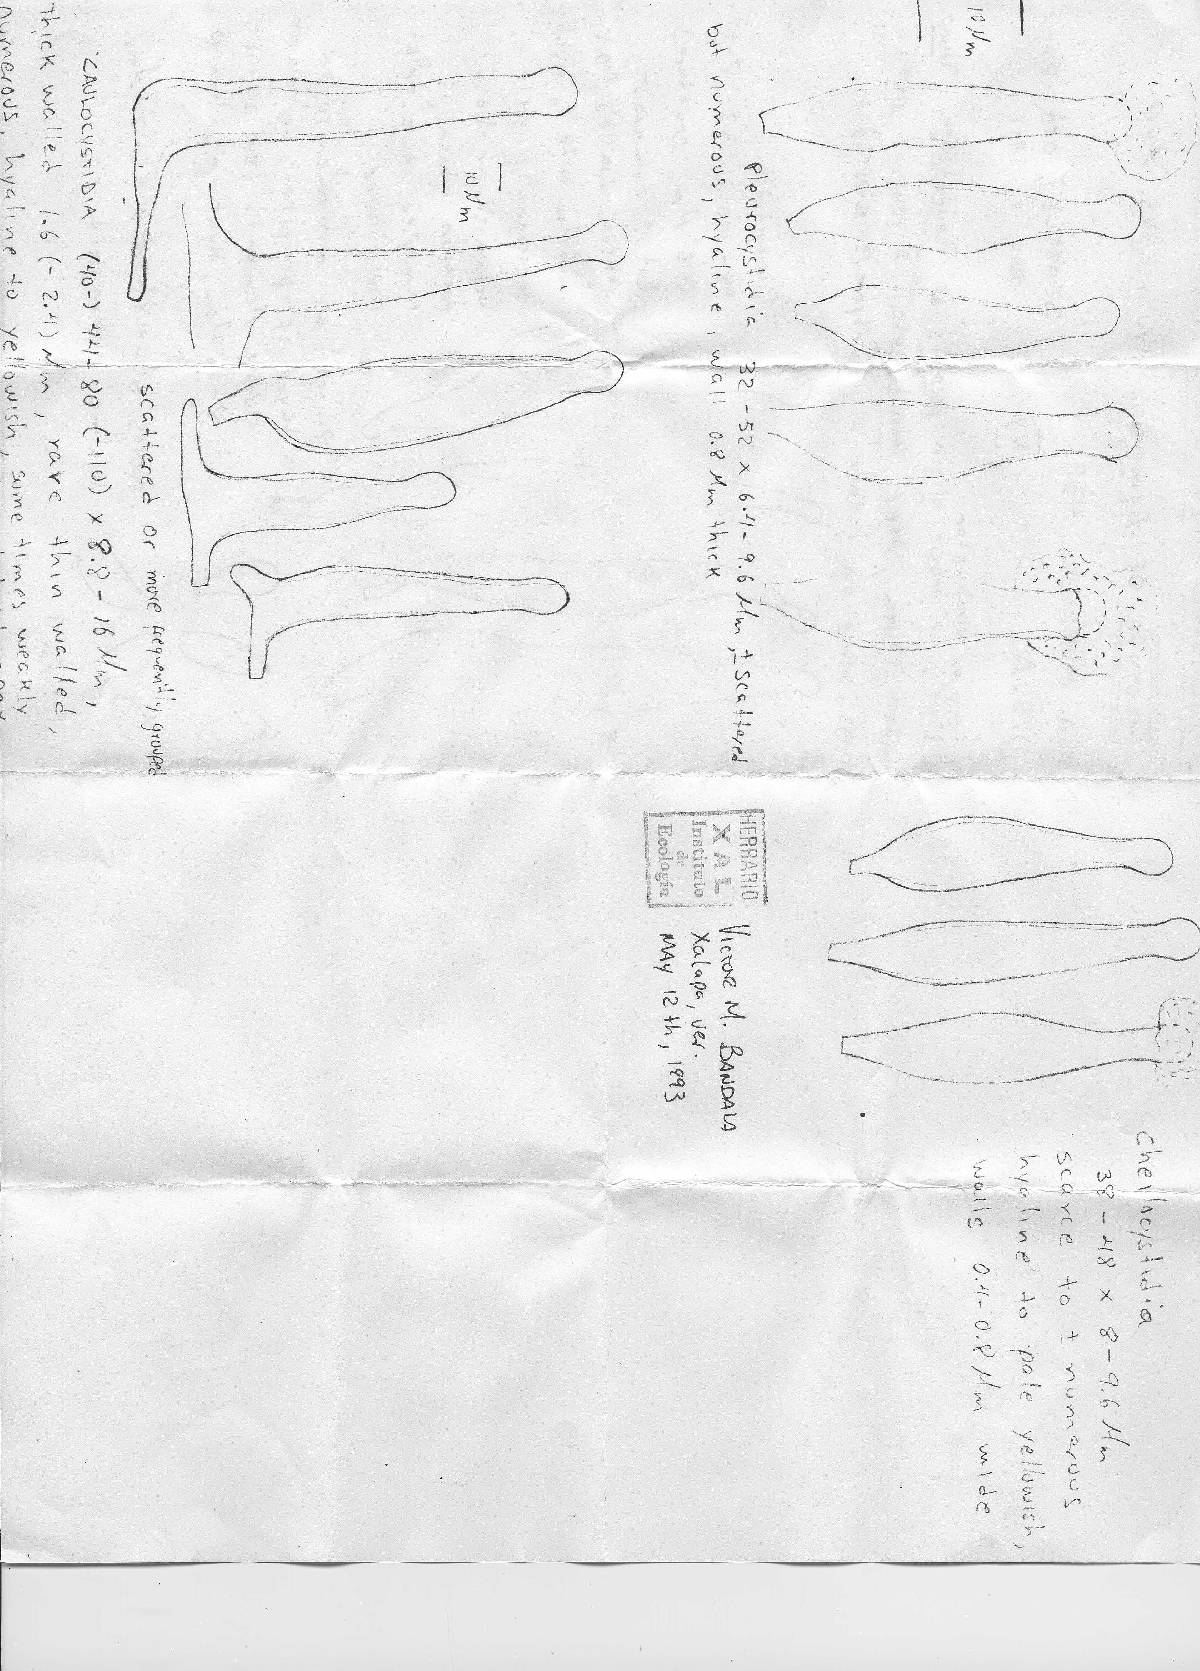 10 µm
Pleurocystidia 32-52 x 6.4-9.6 µm, ± scattered
but numerous, hyaline, wall 0.8 µm thick
10 µm
scattered or more frequently grouped
CAULOCYSTIDIA (40-) 44-80 (-110) x 8.8-16 µm,
thick walled 1.6 (-2.4) µm, rare thin walled,
numerous, hyaline to yellowish, some times weakly
Cheilocystidia
38-48 x 8-9.6 µm
scarce to ± numerous
hyaline to pale yellowish,
walls 0.4-0.8 µm wide
HERBARIO
XAL
Instituto
de
Ecología
VICTOR M. BANDALA
Xalapa, Ver.
MAY 12th, 1993